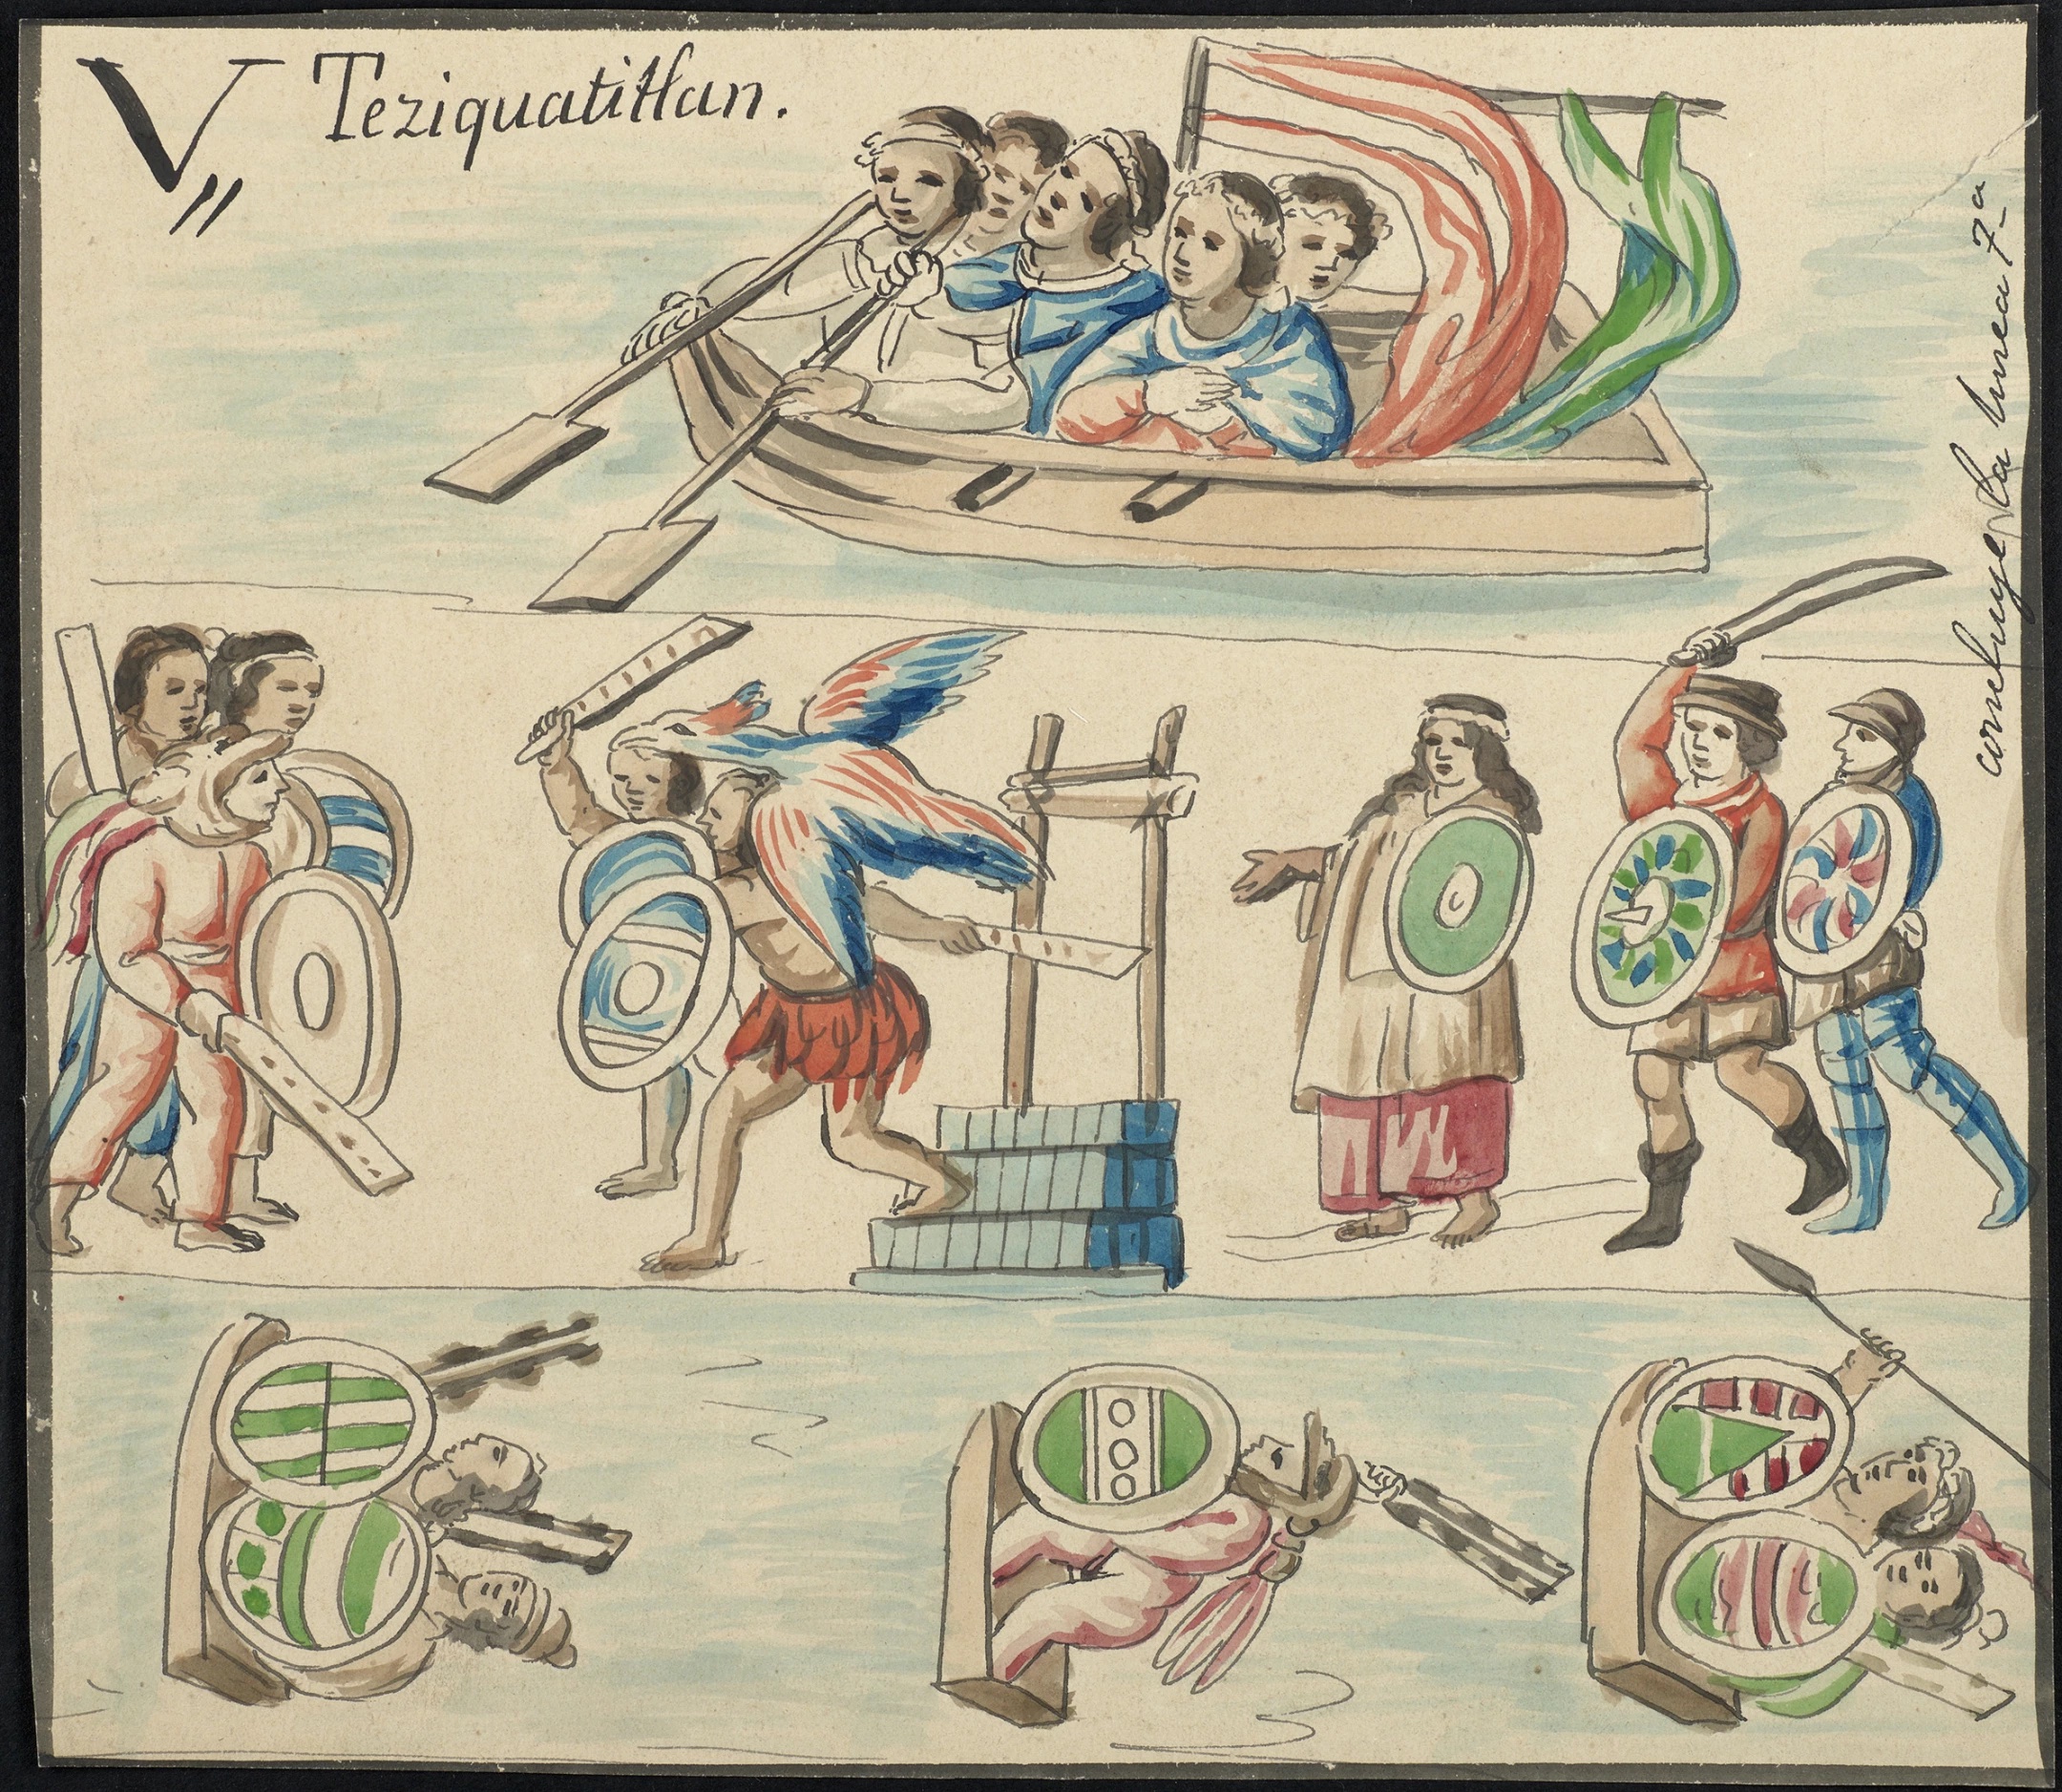 V„ Teziquatitlan.
concluye la linea 7ª